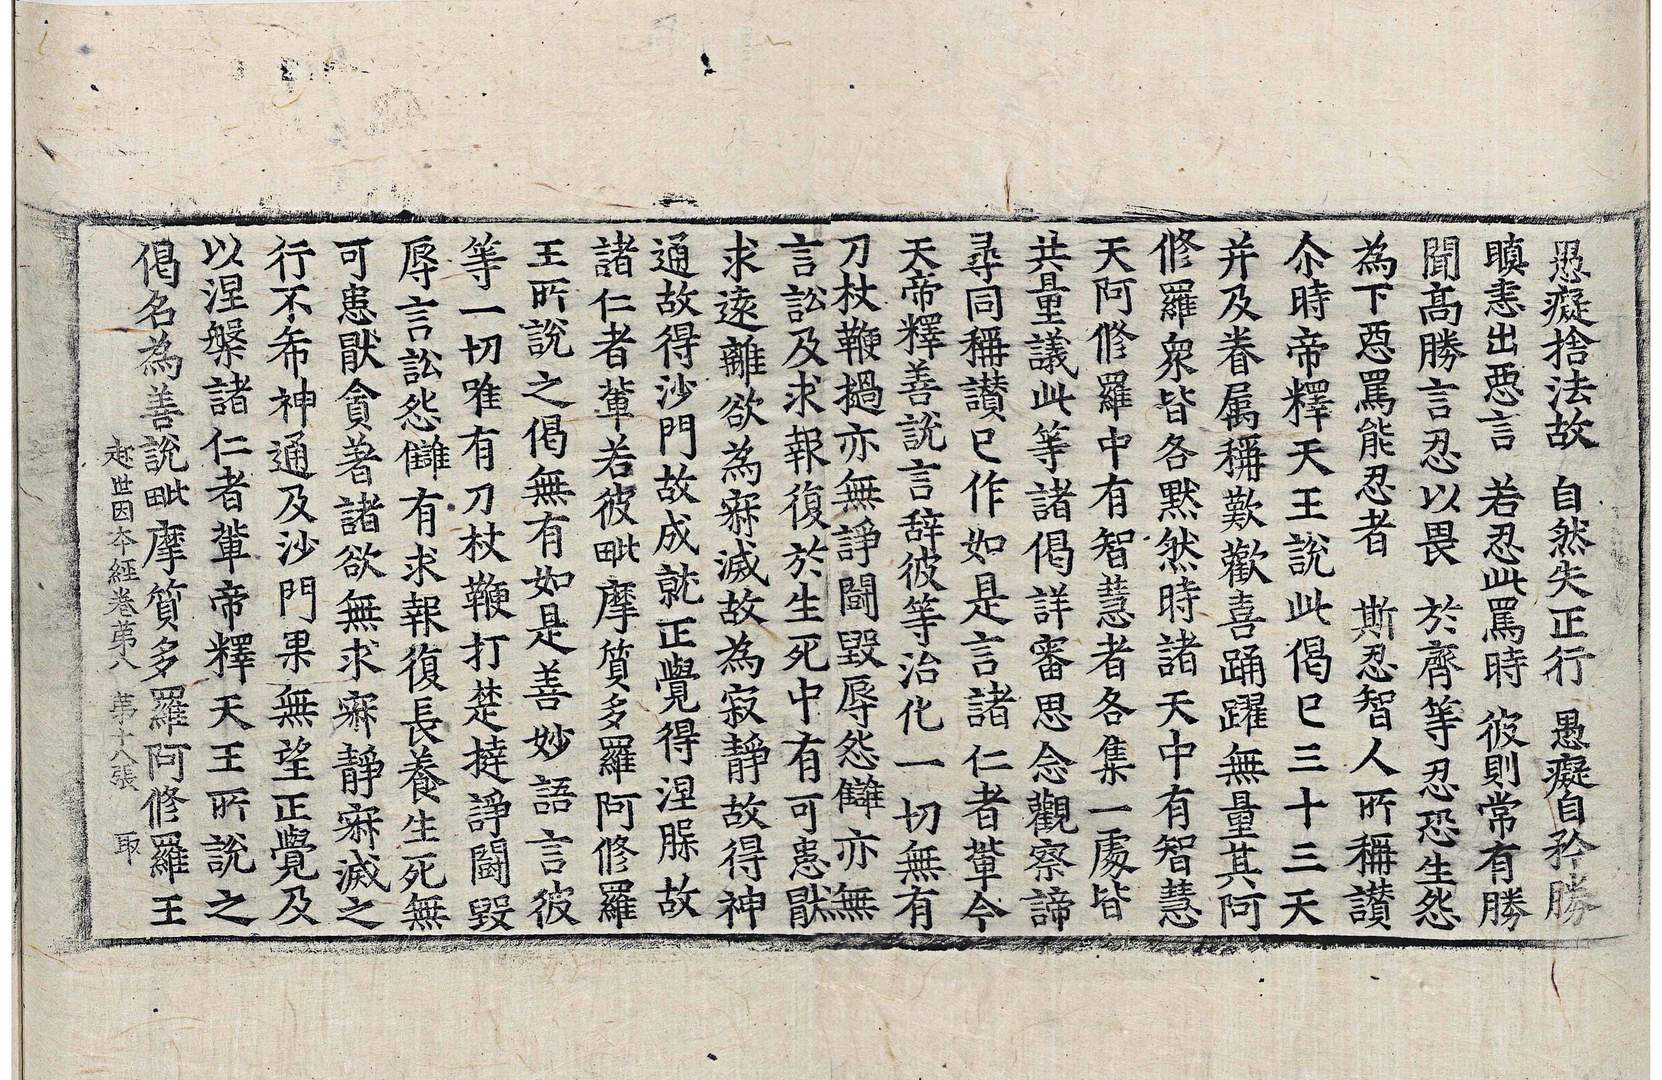 愚癡捨法故　自然失正行　愚癡自矜勝
瞋恚出惡言　若忍此罵時　彼則常有勝
聞高勝言忍以畏　於齊等忍恐生怨
為下惡罵能忍者　斯忍智人所稱讃
尒時帝釋天王說此偈已三十三天
并及眷属稱歎歡喜踊躍無量其阿
修羅衆皆各黙然時諸天中有智慧
天阿修羅中有智慧者各集一處皆
共量議此等諸偈詳審思念觀察諦
尋同稱讃已作如是言諸仁者輩今
天帝釋善說言辞彼等治化一切無有
刀杖鞭撾亦無諍鬪毀辱怨讎亦無
言訟及求報復於生死中有可患猒
求遠離欲為寂滅故為寂靜故得神
通故得沙門故成就正覺得涅槃故
諸仁者輩若彼毗摩質多羅阿修羅
王所說之偈無有如是善妙語言彼
等一切唯有刀杖鞭打楚撻諍鬪毀
辱言訟怨讎有求報復長養生死無
可患猒貪著諸欲無求寂靜寂滅之
行不希神通及沙門果無望正覺及
以涅槃諸仁者輩帝釋天王所說之
偈名為善說毗摩質多羅阿修羅王
起世因本經卷苐八　苐十八張　取